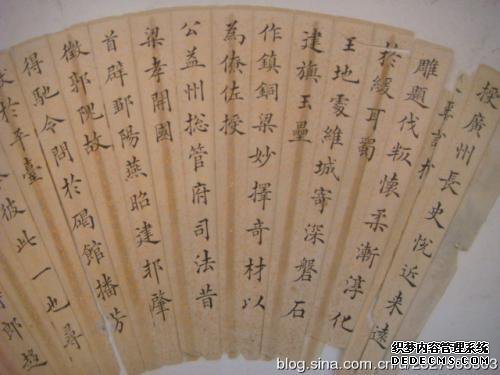 授廣州長史悅近來遠
於
雕題伐叛懷柔漸淳化
於緩耳蜀
王地處維城寄深磐石
建旗玉壘
作鎮銅梁妙擇奇材以
為僚佐授
公益州総管府司法昔
梁孝開國
首辟鄒陽燕昭建邦肇
徵郭隗故
得馳令問於碣館播芳
於平臺
彼此一也尋
郎趨
blog.sina.com.cn/u/2327303303
织梦内容管理系统
DEDECMS.COM